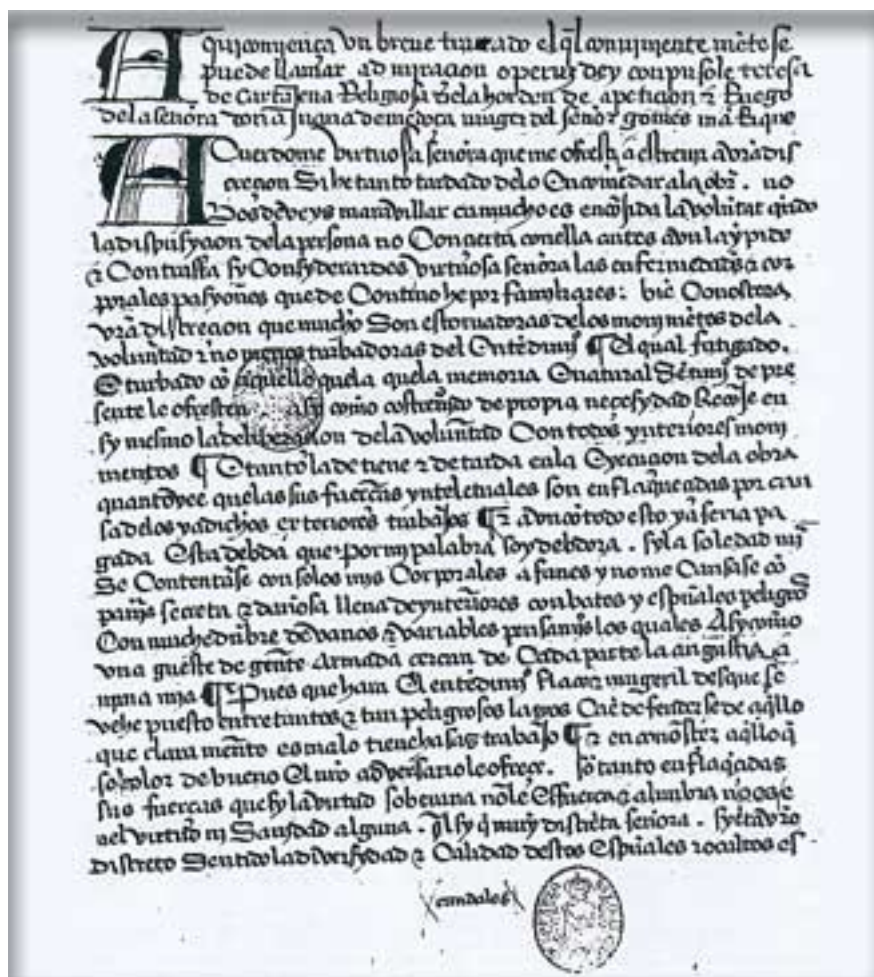 Aqui comiença vn breue tractado el ql conuinjente mẽte se
puede llamar admjraçion operũ dey conpusole teresa
de cartajena Religiosa dela horden de a petiçion & Ruego
dela señora doña Juana de mẽdoça muger del señor gomes mãrrique
Acuerdome virtuosa señora que me ofresçi a escreuir a vrã dis
creçion Si he tanto tardado delo Encomẽdar ala obr. no
Vos deveys marauillar ca mucho es encojida la volũtat qñdo
la dispusyçion dela persona no Conçierta con ella antes avn la ynpide
& Contrasta sy Consyderardes virtuosa señora las enfermedades & cor
porales pasyones que de Contino he por familiares: biẽ Conosçera
vrã discreçion que mucho Son estoruadoras delos mouimẽtos dela
voluntad & no menos turbadoras del Entẽdimjº ¶ El qual fatigado.
E turbado cõ aquello que la quela memoria E natural Sẽtimjº de pre
sente le ofresçen. asy como costreñido de propia neçesydad Recoje en
sy mesmo la deliberaçion dela voluntad Con todos ynteriores moui
mentos ¶ E tanto la detiene & detarda enla Execuçion dela obra
quanto vee que las sus fuerças ynteletuales son enflaqueçidas por cau
sa delos ya dichos exteriores trabajos ¶ & avn cõ todo esto ya seria pa
gada Esta debda que por my palabra soy debdora. sy la soledad mja
Se Contentase con solos mis Corporales afanes y no me Causase cõ
pañja secreta & dañosa llena de ynteriores conbates y espũales peligros
Con muchedũbre de vanos & variables pensamjºs los quales Asy como
vna hueste de gente Armada çercan de Cada parte la angustiada ã
njma mja ¶ Pues que hara El entẽdimjº flaco & mugeril desque se
vehe puesto entre tantos & tan peligrosos lazos Ca ẽ defenderse de aqllo
que clara mente es malo tiene hasaz trabajo ¶ & en conosçer aqllo q̃
so color de bueno El nrõ adversario le ofreçe. sõ tanto enflaqdas
sus fuerças que sy la virtud soberana nõ le Esfuerça & alunbra no es
nel virtud nj Sanydad alguna. Asy q̃ muy discreta señora. syẽta vrõ
discreto Sentido la diversydad & Calidad destos Espũales & ocultos es
candalos